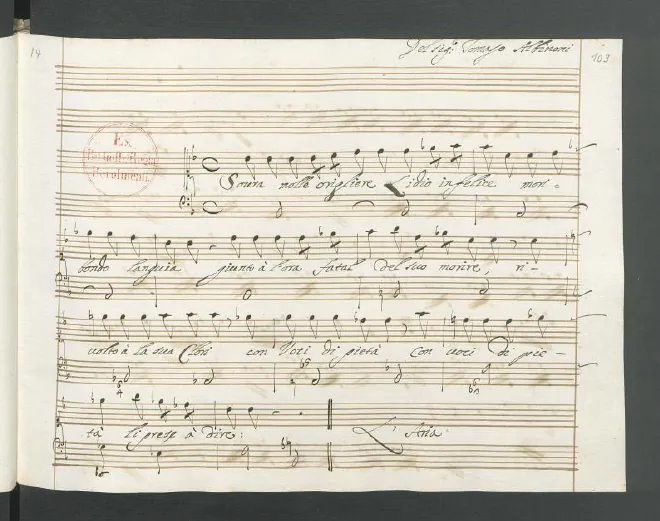 14
Del Sigr. Tomaso Albinoni
103
Ex
Biblioth. Regia
Berolinensi
Soura molle origliere Lidio infelice mori-
bondo languia giunto à l'ora fatal del suo morire, ri-
volto à la sua Clori con voci di pietà con voci di pie-
tà li prese à dire: L'Aria